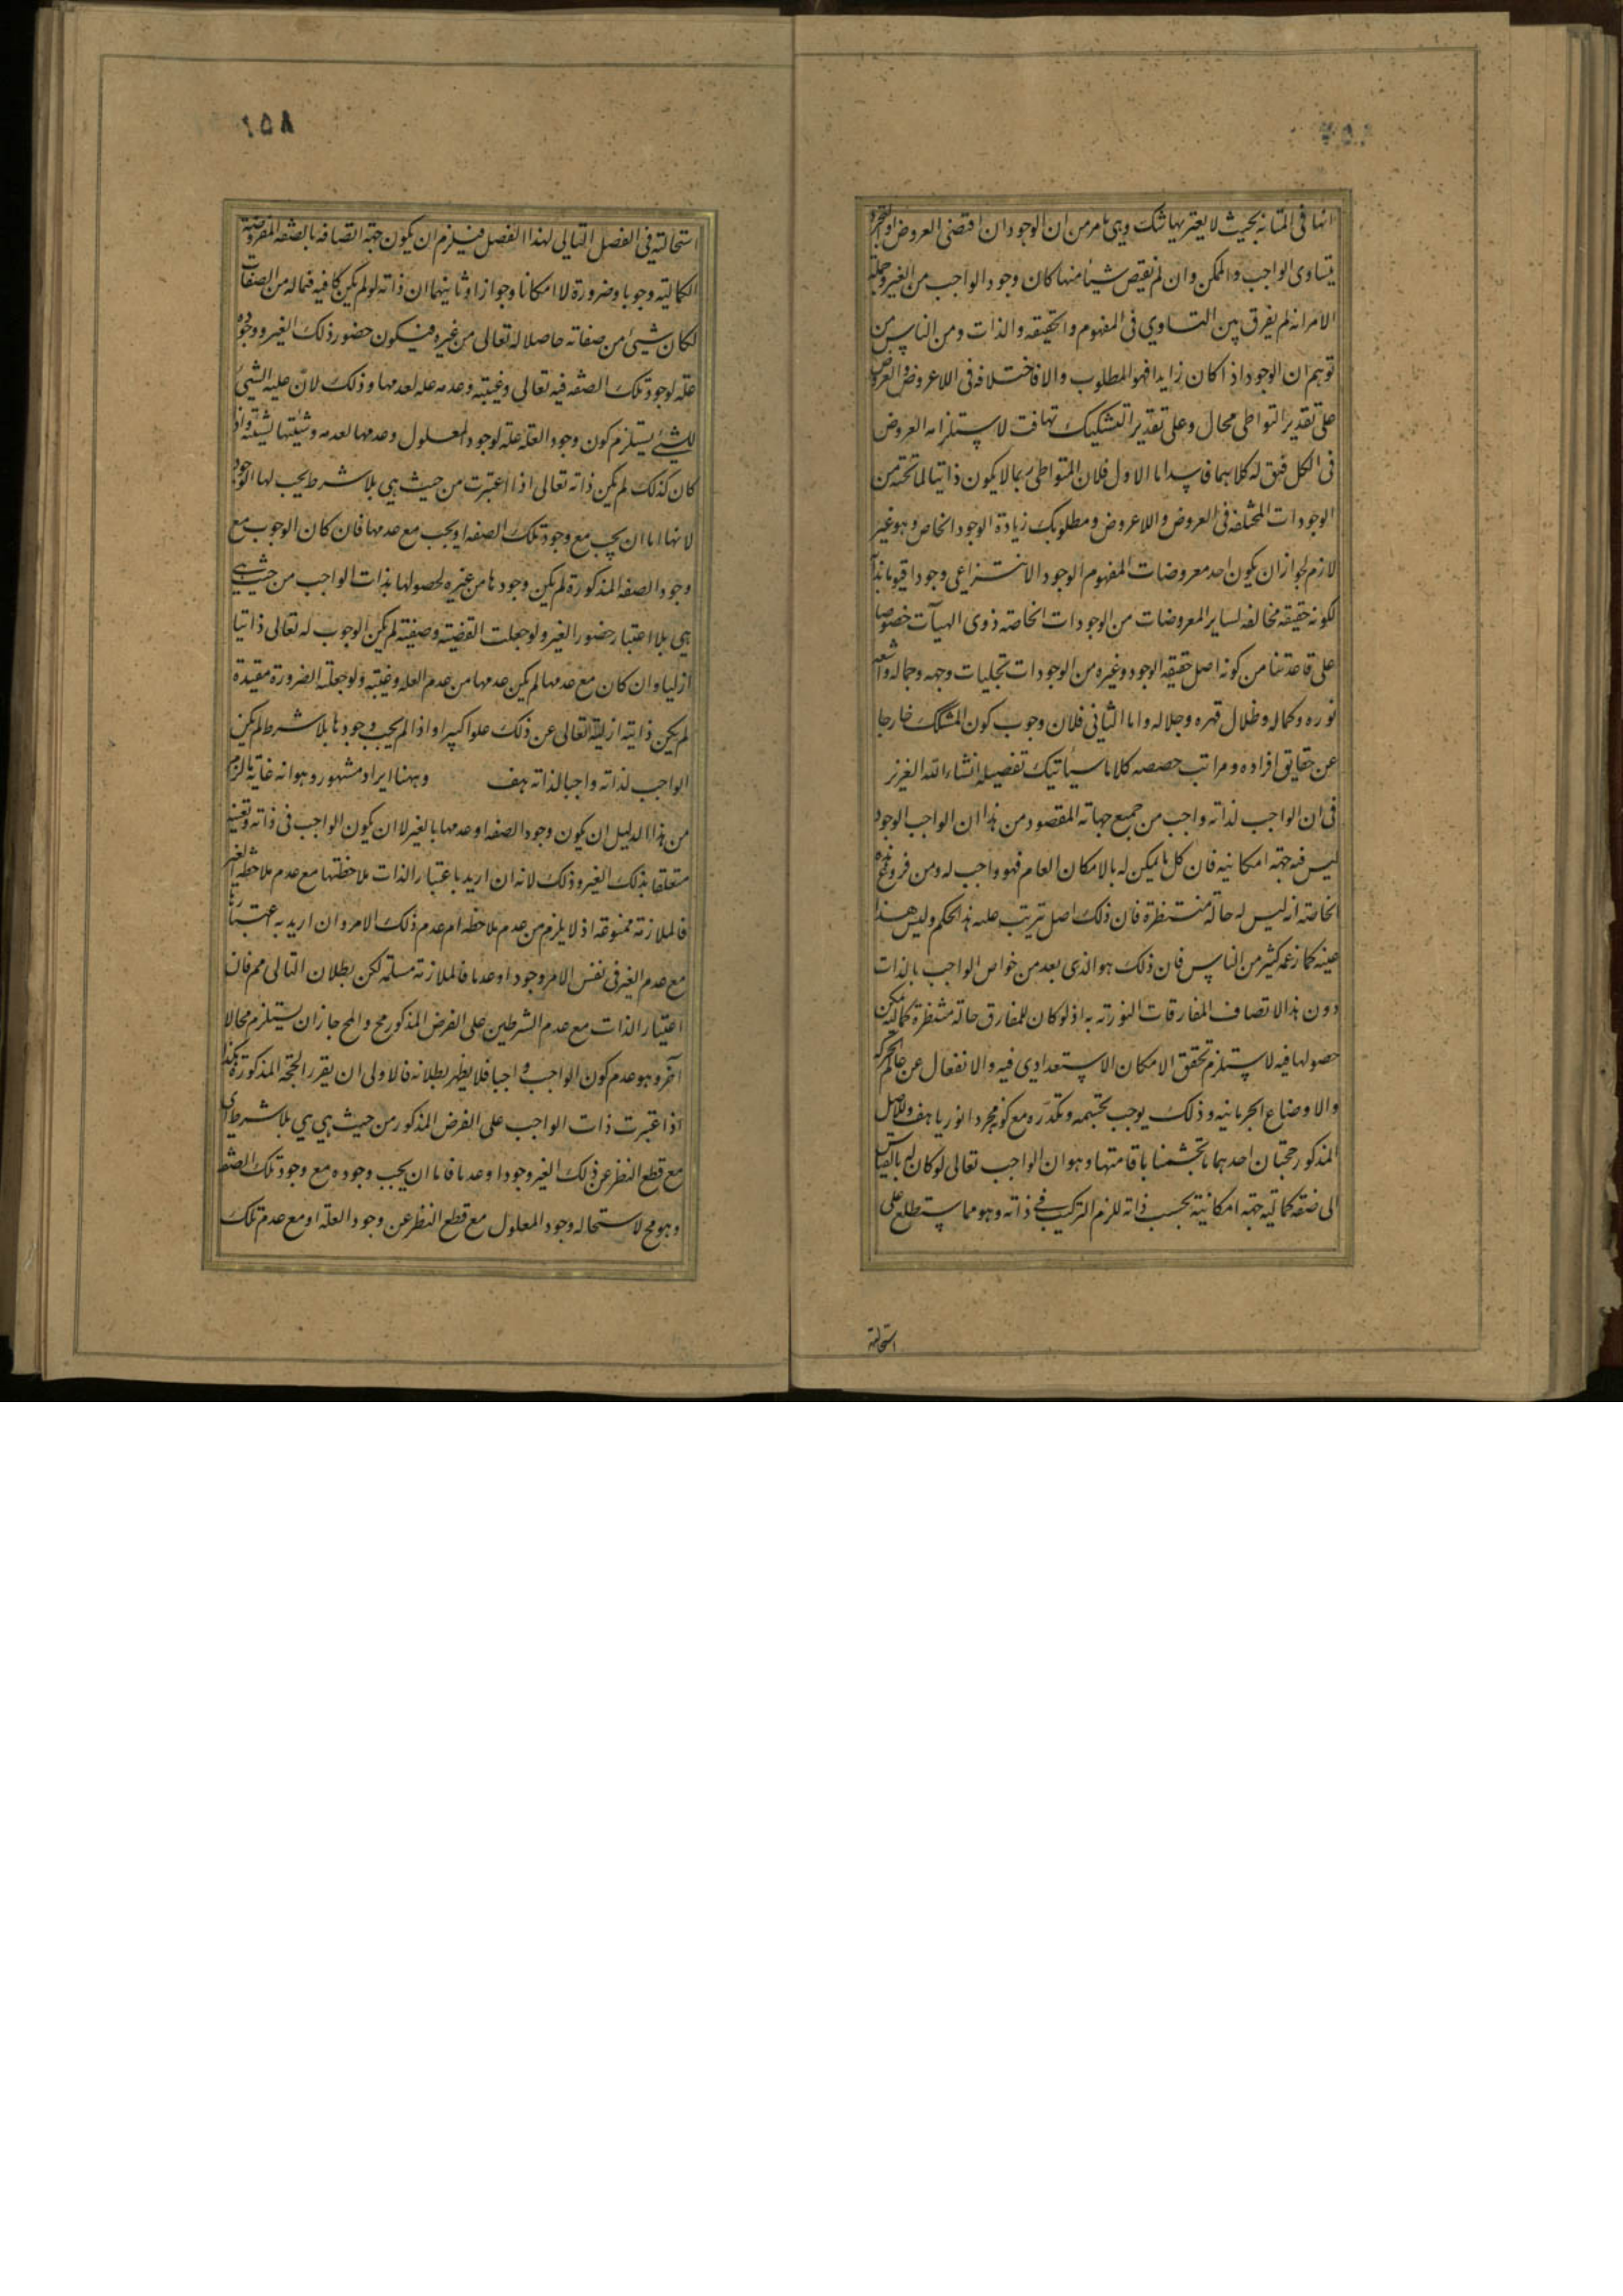 انها فى المتانة بحيث لا يعتريها شك وهى ما مر من ان الوجود ان اقتضى العروض او التجرد
يتساوى الواجب والممكن وان لم يقتض شيئا منها كان وجود الواجب من الغير وجملة
الامر انه لم يفرق بين التساوى فى المفهوم والحقيقه والذات ومن الناس من
توهم ان الوجود اذا كان زايدا فهو المطلوب والا فاختلافه فى اللاعروض والعروض
على تقدير التواطى محال وعلى تقدير التشكيك تهافت لاستلزامه العروض
فى الكل فيق له كلاهما فاسد اما الاول فلان المتواطى ربما لا يكون ذاتيا لما تحته من
الوجودات المختلفه فى العروض واللاعروض ومطلوبك زيادة الوجود الخاص وهو غير
لازم لجواز ان يكون احد معروضات المفهوم الوجود الانتزاعى وجودا قيوما بذاته
لكونه حقيقه مخالفه لساير المعروضات من الوجودات الخاصه ذوى المهيآت خصوصا
على قاعدتنا من كونه اصل حقيقه الوجود وغيره من الوجودات تجليات وجهه وجماله واشعه
نوره وكماله وظلال قهره وجلاله واما الثانى فلان وجوب كون المشكك خارجا
عن حقايق افراده ومراتب حصصه كلاما سيأتيك تفصيله انشاء الله العزيز
فى ان الواجب لذاته واجب من جميع جهاته المقصود من هذا ان الواجب الوجود
ليس فيه جهة امكانيه فان كل ما يمكن له بالامكان العام فهو واجب له ومن فروع هذه
الخاصه انه ليس له حالة منتظرة فان ذلك اصل يترتب عليه هذا الحكم وليس هذا
عينه كما زعمه كثير من الناس فان ذلك هو الذى يعد من خواص الواجب بالذات
دون هذا لاتصاف المفارقات النورية به اذ لو كان للمفارق حالة منتظرة كماليه يمكن
حصولها فيه لاستلزم تحقق الامكان الاستعدادى فيه والانفعال عن عالم الحركه
والاوضاع الجرمانيه وذلك يوجب تجسمه وتكدره مع كونه مجردا نوريا هف وللاصل
المذكور حجتان احديهما ما تجشمنا باقامتها وهو ان الواجب تعالى لو كان له بالقياس
الى صفة كمالية جهة امكانية بحسب ذاته للزم التركيب فى ذاته وهو مما ستطلع على
استحالته
١٥٨
استحالته فى الفصل التالى لهذا الفصل فيلزم ان يكون جهة اتصافه بالصفه المفروضة
الكمالية وجوبا وضرورة لا امكانا وجوازا وثانيهما ان ذاته لو لم يكن كافيه فيما له من الصفات
لكان شيئ من صفاته حاصلا له تعالى من غيره فيكون حضور ذلك الغير ووجوده
علة لوجود تلك الصفه فيه تعالى وغيبته وعدمه عله لعدمها وذلك لان علية الشيئ
للشيئ يستلزم كون وجود العلة علة لوجود المعلول وعدمها لعدمه وشيئيتها لشيئيته واذا
كان كذلك لم يكن ذاته تعالى اذا اعتبرت من حيث هى بلا شرط يجب لها الوجود
لانها اما ان يجب مع وجود تلك الصفه او يجب مع عدمها فان كان الوجوب مع
وجود الصفه المذكورة لم يكن وجودها من غيره لحصولها بذات الواجب من حيث هى
هى بلا اعتبار حضور الغير ولو جعلت القضية وصفية لم يكن الوجوب له تعالى ذاتيا
ازليا وان كان مع عدمها لم يكن عدمها من عدم العله وغيبته ولو جعلت الضرورة مقيدة
لم يكن ذاتية ازلية تعالى عن ذلك علوا كبيرا واذا لم يجب وجودها بلا شرط لم يكن
الواجب لذاته واجبا لذاته هف وههنا ايراد مشهور وهو انه غاية ما لزم
من هذا الدليل ان يكون وجود الصفه او عدمها بالغير لا ان يكون الواجب فى ذاته وتعينه
متعلقا بذلك الغير وذلك لانه ان اريد باعتبار الذات ملاحظتها مع عدم ملاحظه الغير
فالملازمة ممنوعه اذ لا يلزم من عدم ملاحظه امر عدم ذلك الامر وان اريد به اعتبارها
مع عدم الغير فى نفس الامر وجودا وعدما فالملازمة مسلمه لكن بطلان التالى مم فان
اعتبار الذات مع عدم الشرطين على الفرض المذكور مح والمح جاز ان يستلزم محالا
آخر وهو عدم كون الواجب واجبا فلا يظهر بطلانه فالاولى ان يقرر الحجه المذكورة هكذا
اذا اعتبرت ذات الواجب على الفرض المذكور من حيث هى هى بلا شرط اى
مع قطع النظر عن ذلك الغير وجودا وعدما فاما ان يجب وجوده مع وجود تلك الصفه
وهو مح لاستحاله وجود المعلول مع قطع النظر عن وجود العلة او مع عدم تلك